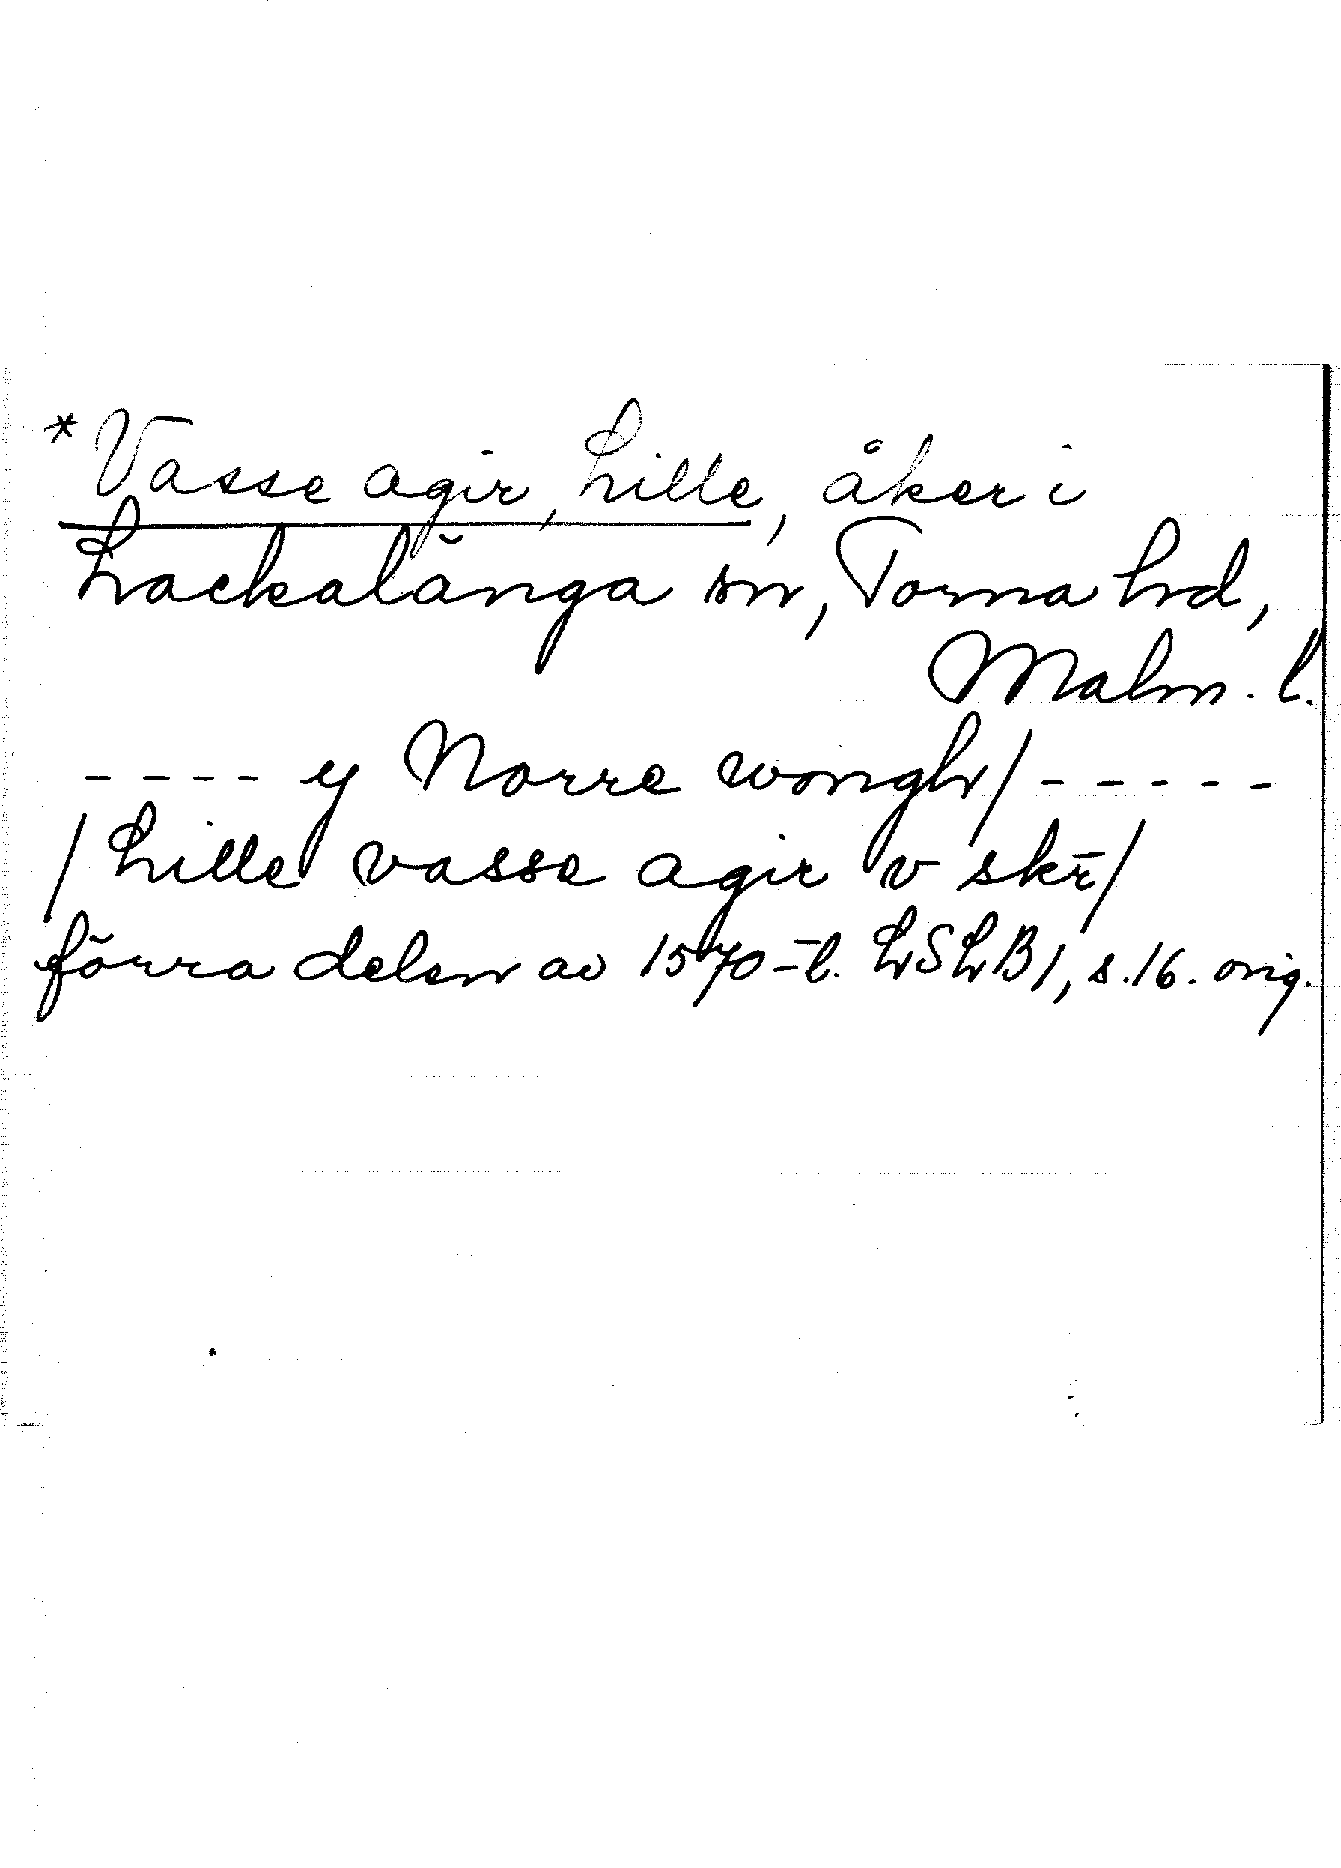 *Vasse agir, Lille, åker i
Lackalänga sn, Torna hd,
Malm. l.
---- y Norre wongh/-----
/Lille vasse agir v skr̄/
förra delen av 1570-t. LSLB1, s.16. orig.